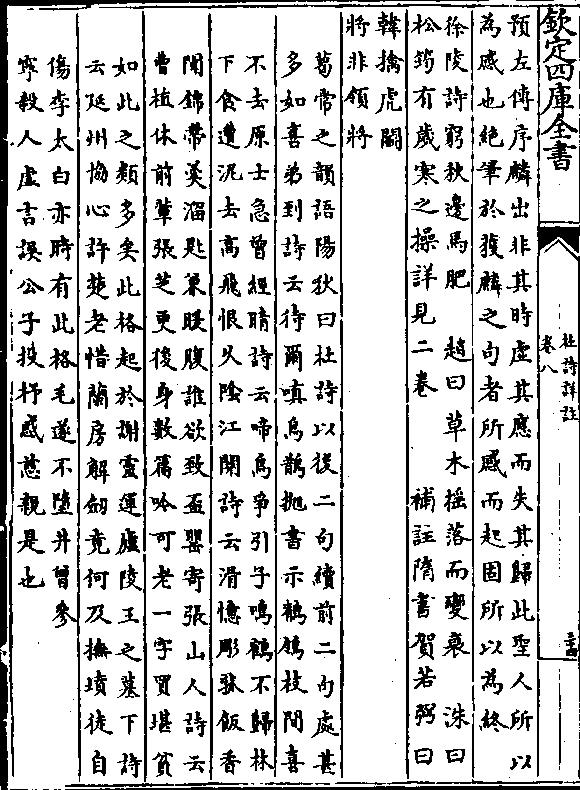 欽定四庫全書
杜詩詳註
卷八
預左傳序麟出非其時虛其應而失其歸此聖人所以
為感也絕筆於獲麟之句者所感而起固所以為終
徐陵詩窮秋邊馬肥　趙曰草木搖落而變衰　洙曰
松筠有歲寒之操詳見二卷　補註隋書賀若弼曰
韓擒虎鬭
將非領將
葛常之韻語陽秋曰杜詩以後二句續前二句處甚
多如喜弟到詩云待爾嗔烏鵲抛書示鶺鴒枝間喜
不去原上急曾經晴詩云啼烏爭引子鳴鶴不歸林
下食遭泥去高飛恨久陰江閣詩云滑憶彫胡飯香
聞錦帶羮溜匙兼暖腹誰欲致盃罌寄張山人詩云
曹植休前輩張芝更後身數篇吟可老一字買堪貧
如此之類多矣此格起於謝靈運廬陵王之墓下詩
云延州恊心許楚老惜蘭房解劒竟何及撫墳徒自
傷李太白亦時有此格毛遂不墮井曾參
寧殺人虛言誤公子投杼感慈親是也